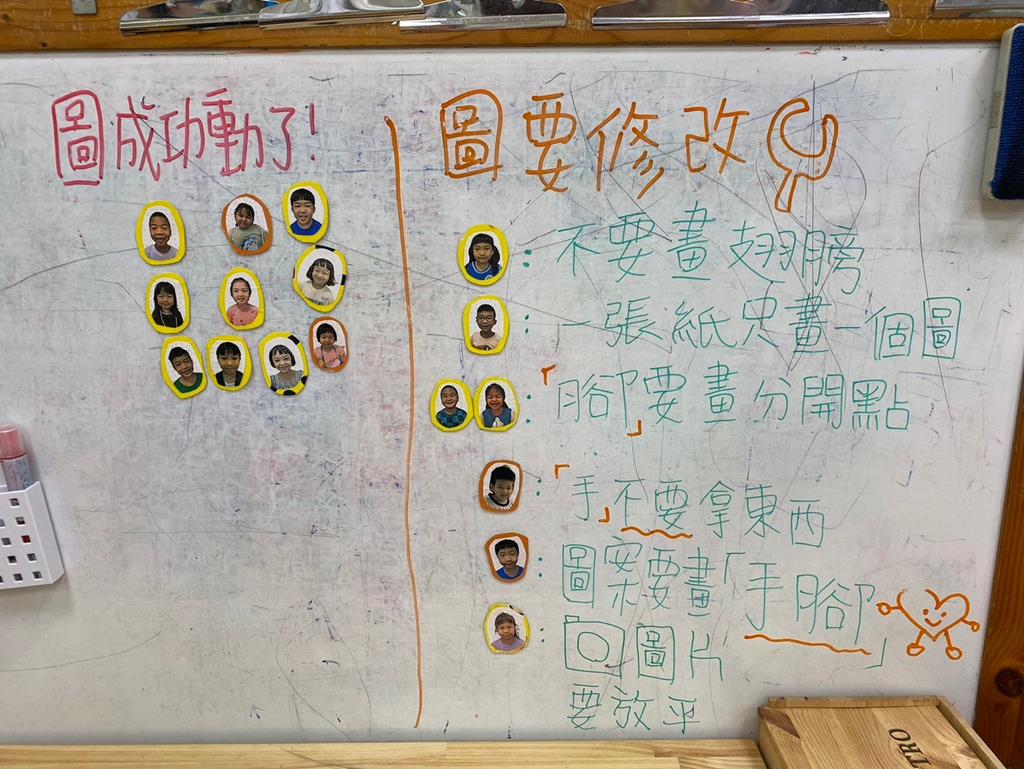 圖成功動了!
圖要修改
:不要畫翅膀
:一張紙只畫一個圖
:「腳」要畫分開點
:「手」不要拿東西
:圖案要畫「手腳」
:圖片
要放平
TRO